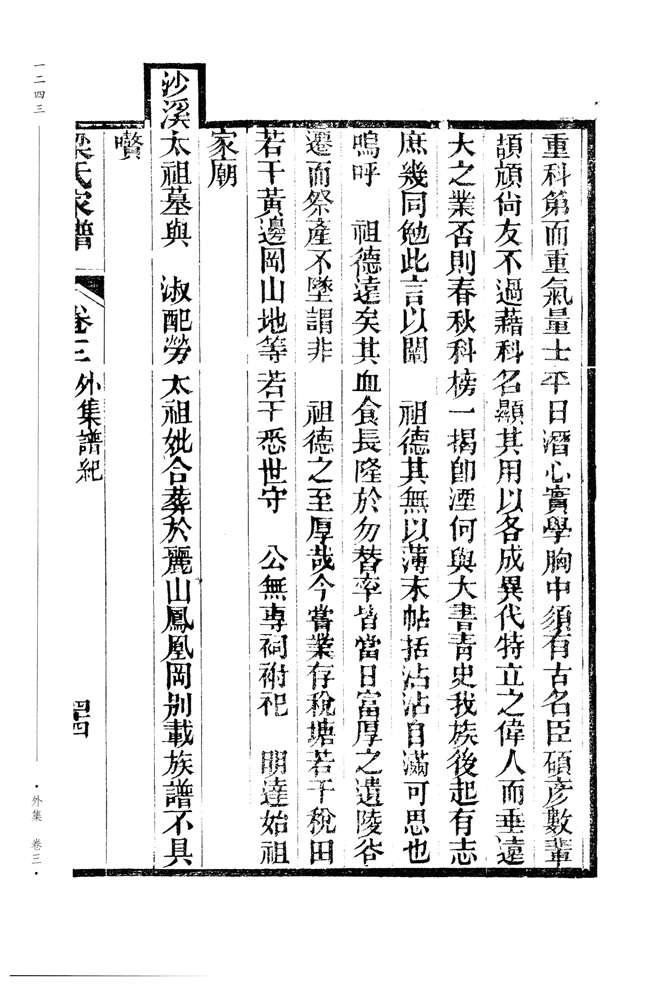 重科第而重氣量士平日潛心實學胸中須有古名臣碩彥數輩
頡頏尙友不過藉科名顯其用以各成異代特立之偉人而垂遠
大之業否則春秋科榜一揭卽湮何與大書靑史我族後起有志
庶幾同勉此言以闡　祖德其無以薄末帖括沾沾自滿可思也
嗚呼　祖德遠矣其血食長隆於勿替率皆當日富厚之遺陵谷
遷而祭產不墜謂非　祖德之至厚哉今嘗業存稅塘若干稅田
若干黃邊岡山地等若干悉世守　公無專祠祔祀　明達始祖
家廟
沙溪太祖墓與　淑配勞太祖妣合葬於麗山鳳凰岡別載族譜不具
贅
梁氏家譜　卷三 外集譜紀　四
一二四三
・外集 卷三・